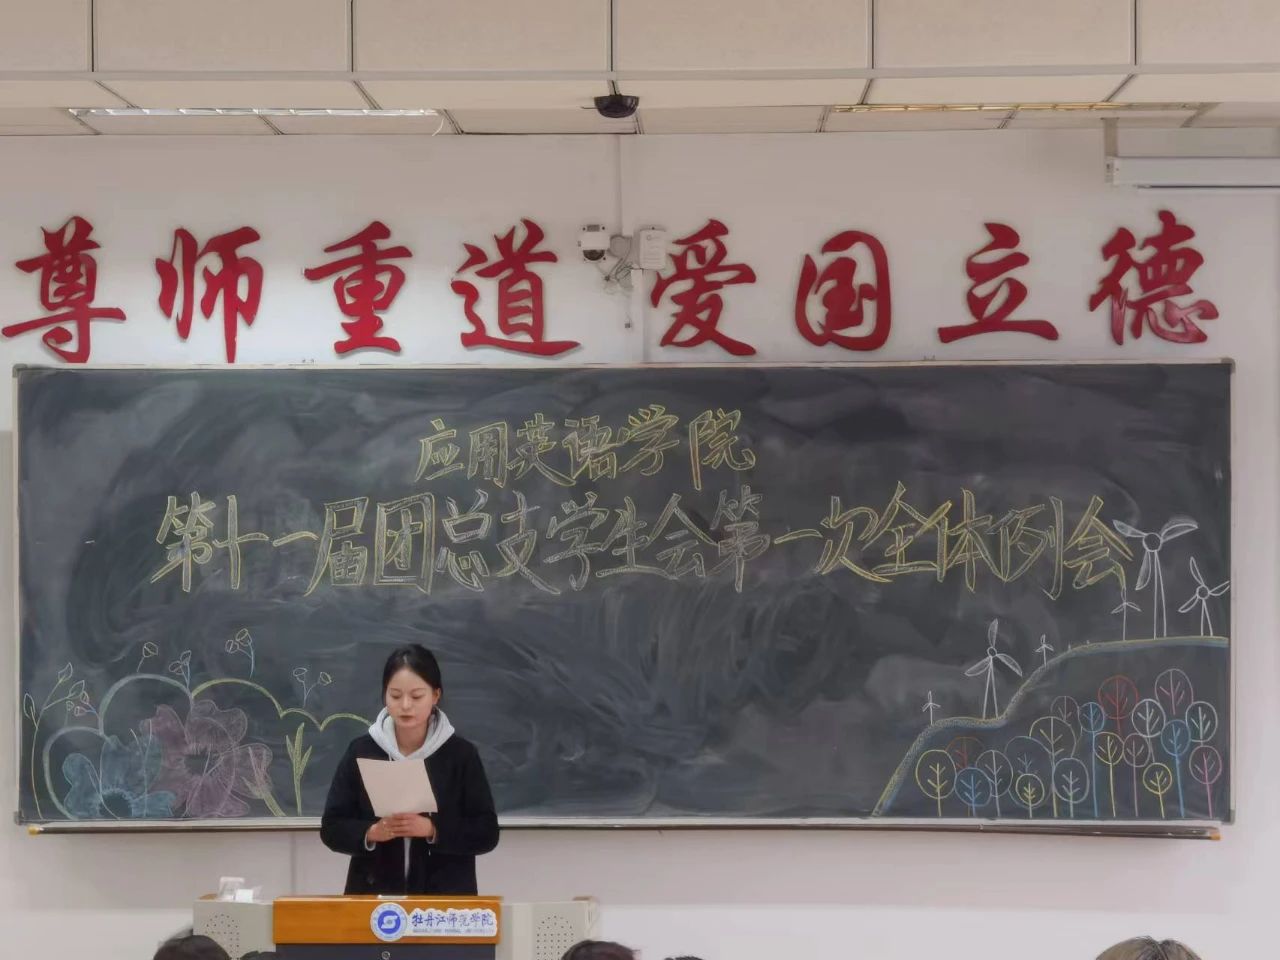 尊师重道 爱国立德
应用英语学院
第十一届团总支学生会第一次全体例会
牡丹江师范学院